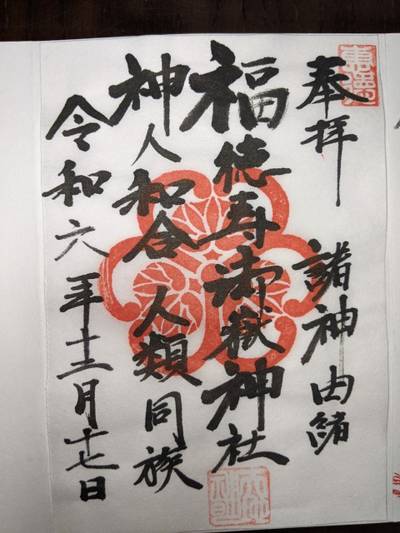 奉拝 諸神由緒
福徳寿御嶽神社
神人和合 人類同族
令和六年十二月十七日